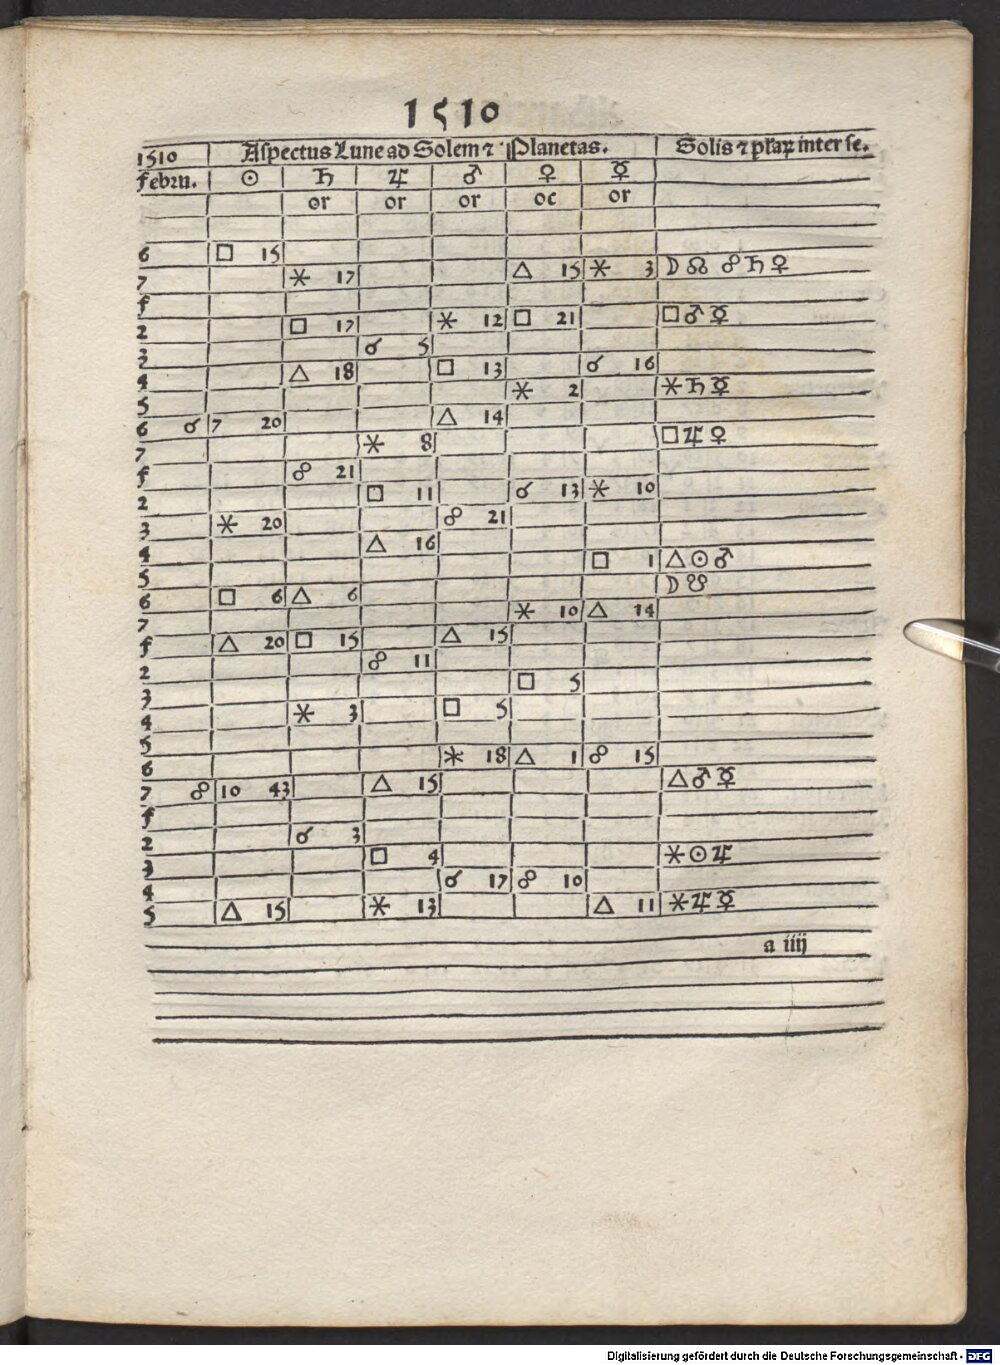 1510
1510 Aspectus Lune ad Solem ⁊ Planetas. Solis ⁊ plaꝝ inter se.
Febru. ☉ ♄ ♃ ♂ ♀ ☿
or or or oc or
6 □ 15
7 ⚹ 17 △ 15 ⚹ 3 ☽ ☊ ☍ ♄ ♀
f
2 □ 17 ⚹ 12 □ 21 □ ♂ ☿
3 ☌ 5
4 △ 18 □ 13 ☌ 16
5 ⚹ 2 ⚹ ♄ ☿
6 ☌ 7 20 △ 14
7 ⚹ 8 □ ♃ ♀
f ☍ 21
2 □ 11 ☌ 13 ⚹ 10
3 ⚹ 20 ☍ 21
4 △ 16 □ 1 △ ☉ ♂
5 ☽ ☋
6 □ 6 △ 6
7 ⚹ 10 △ 14
f △ 20 □ 15 △ 15
2 ☍ 11
3 □ 5
4 ⚹ 3 □ 5
5
6 ⚹ 18 △ 1 ☍ 15
7 ☍ 10 43 △ 15 △ ♂ ☿
f
2 ☌ 3
3 □ 4 ⚹ ☉ ♃
4 ☌ 17 ☍ 10
5 △ 15 ⚹ 13 △ 11 ⚹ ♃ ☿
a iiij
Digitalisierung gefördert durch die Deutsche Forschungsgemeinschaft - DFG